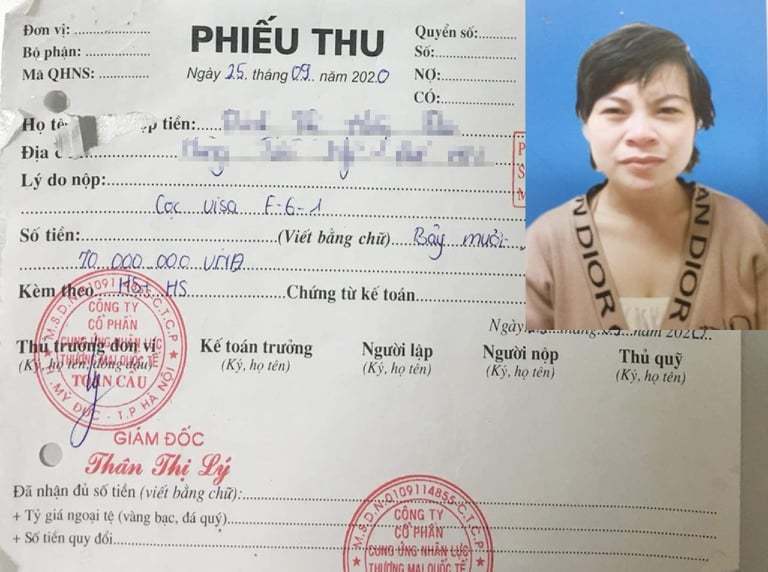 Đơn vị:
Bộ phận:
Mã QHNS:
PHIẾU THU
Ngày 25. tháng 09.. năm 2020
Quyển số:
Số:
NỢ:
CÓ:
Họ tê
ộp tiền:
Địa
Lý do nộp:
Cọc visa F-6-1
Số tiền: (Viết bằng chữ) Bảy mươi
70 000 000 VNĐ
Kèm theo. HĐ+ HS Chứng từ kế toán.
Ngày năm 202
Thủ trưởng đơn vị
(Ký, họ tên, đóng dấu)
Kế toán trưởng
(Ký, họ tên)
Người lập
(Ký, họ tên)
Người nộp
(Ký, họ tên)
Thủ quỹ
(Ký, họ tên)
M.S.D.N:0109114855-C.T.C.P
CÔNG TY
CỔ PHẦN
CUNG ỨNG NHÂN LỰC
THƯƠNG MẠI QUỐC TẾ
TOÀN CẦU
MỸ ĐỨC - T.P HÀ NỘI
GIÁM ĐỐC
Thân Thị Lý
Đã nhận đủ số tiền (viết bằng chữ):
+ Tỷ giá ngoại tệ (vàng bạc, đá quý)
+ Số tiền quy đổi
M.S.D.N:0109114855-C.T.C.P
CÔNG TY
CỔ PHẦN
CUNG ỨNG NHÂN LỰC
THƯƠNG MẠI QUỐC TẾ
AN DIOR
ON DIOR